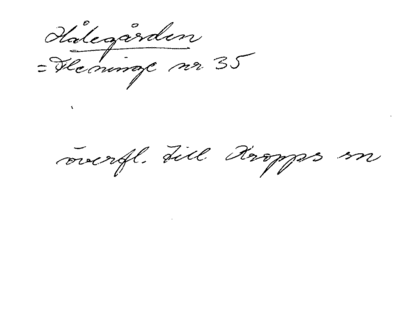 Hålegården
= Fleninge nr 35
överfl. till Kropps sn